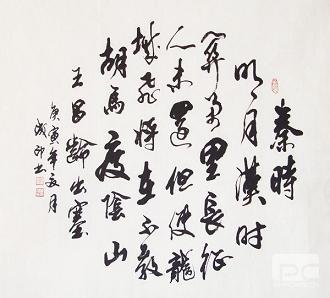 秦時
明月漢时
關萬里長征
人未還但使龍
城飛將在不教
胡馬度陰山
王昌齡出塞
庚寅年夏月
书
PC